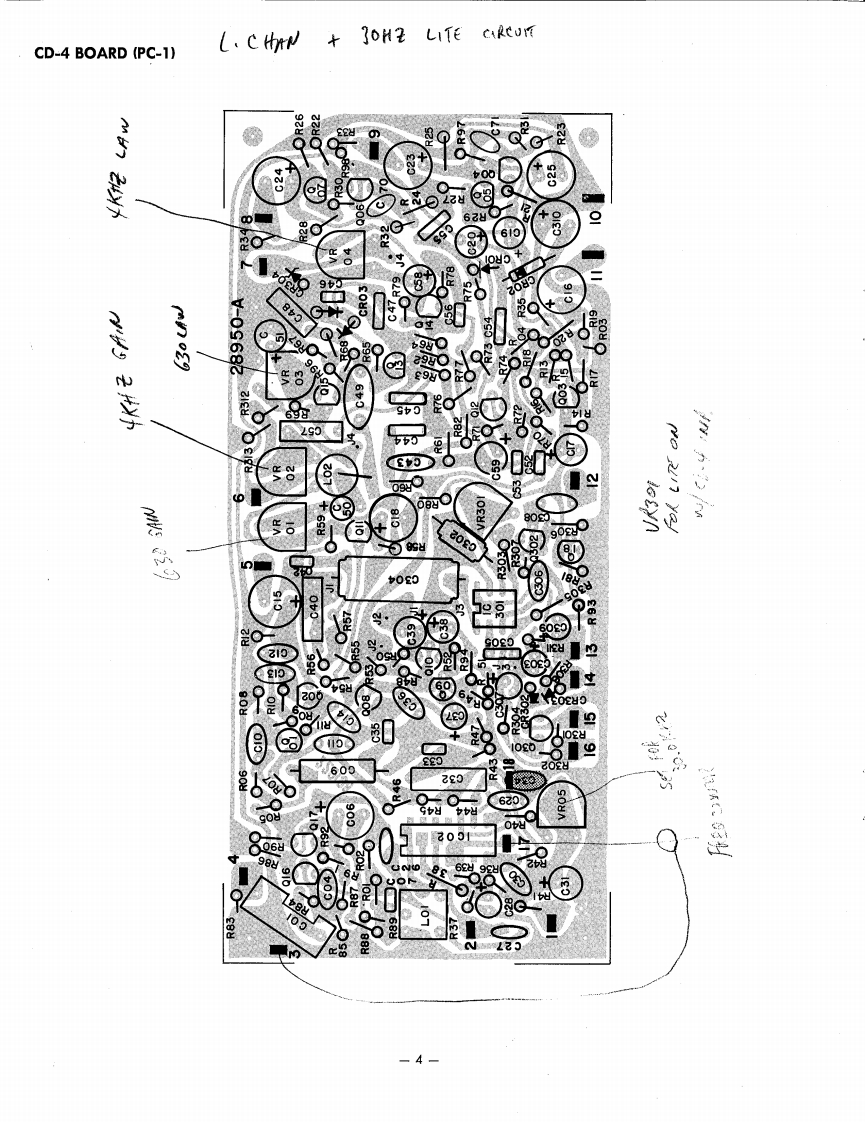 CD-4 BOARD (PC-1)
L. CHAN + 30HZ LITE CIRCUIT
4KHZ LAW
4KHZ GAIN
630 LAW
630 GAIN
VR301
FOR LITE ON
W/
SET FOR
28950-A
R26
R22
R25
R97
C71
R31
R23
9
C24
C23
C25
R30
R98
Q06
C70
R24
R27
R29
C310
10
8
R34
R28
R32
C55
C20
C19
7
VR04
J4
CR304
C46
C48
CR03
R79
C58
R78
R75
CR01
CR02
C16
11
C47
Q14
C56
C54
R35
R19
R03
C51
R67
R96
R68
R65
VR03
Q13
R64
R62
R63
R77
R73
R74
R18
R13
R20
R17
R312
R69
Q15
C49
C45
R76
Q12
R72
Q03
R14
R313
C57
J4
C44
R61
R82
R71
R70
C17
VR02
L02
C43
C59
C53
C52
12
6
C50
R60
R80
VR301
C308
VR01
R59
Q11
C18
R58
C302
R306
R307
Q302
R303
R81
5
C42
C15
C40
J1
C304
C306
R305
R93
IC301
R57
J2
J1
J3
C39
C38
C309
R311
13
R12
C12
R56
R55
J2
R50
Q10
R52
C305
C303
14
C13
R53
R48
R94
R08
R10
Q02
R54
Q08
C36
Q09
C307
CR303
15
R11
C14
C37
R304
C10
Q01
C11
C35
R47
Q301
R301
R302
16
C09
C33
R43
18
C34
R06
R07
R05
R46
C32
C29
VR05
Q17
C06
R45
R44
R40
R90
R86
R92
R02
IC02
17
4
Q16
C04
R01
C26
C07
R38
R39
R36
C30
R42
R41
C31
R83
R84
C01
R87
R85
R88
R89
L01
R37
C28
3
2
C27
1
— 4 —